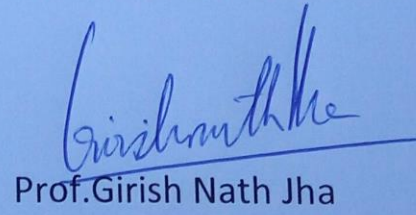 Girishnathjha
Prof.Girish Nath Jha